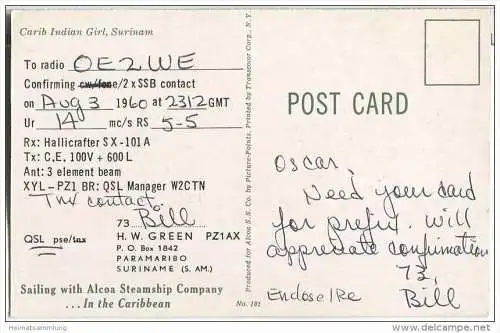 Carib Indian Girl, Surinam
To radio OE2WE
Confirming cw/fone/2 x SSB contact
on Aug 3 1960 at 2312 GMT
Ur 14 mc/s RS 5-5
Rx: Hallicrafter SX-101A
Tx: C.E. 100V + 600 L
Ant: 3 element beam
XYL - PZ1 BR; QSL Manager W2CTN
Tnx contact.
73 Bill
QSL pse/tnx
H. W. GREEN PZ1AX
P. O. Box 1842
PARAMARIBO
SURINAME (S. AM.)
Sailing with Alcoa Steamship Company
...In the Caribbean
Produced for Alcoa S. S. Co. by Picture-Points. Printed by Transcolor Corp., N. Y.
POST CARD
Oscar,
Need your card
for prefix. Will
appreciate confirmation
73,
Bill
Enclose IRC
No. 101
Heimatsammlung
oldthing.de